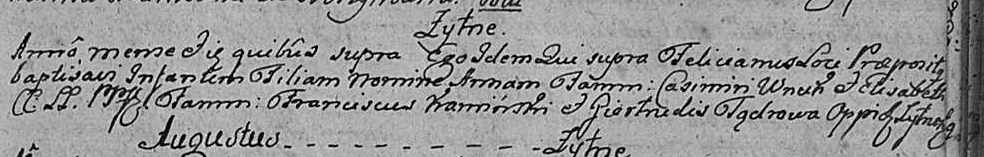 Żytne.
Annô, mense Die quibûs supra Ego Idem Qui supra Felicianus Loci Præposity
baptisavi Infantem Filiam nomine Annam Famm: Casimiri Wnuk et Elisabeth
CC. LL. PPry Famm: Franciscus Kaminski et Giertrudis Fądrowa Oppid Żytneg
Augustus - - - - - - - - - Żytne